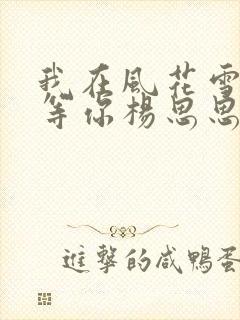 我在風花雪
等你楊思思
進擊的咸鴨蛋